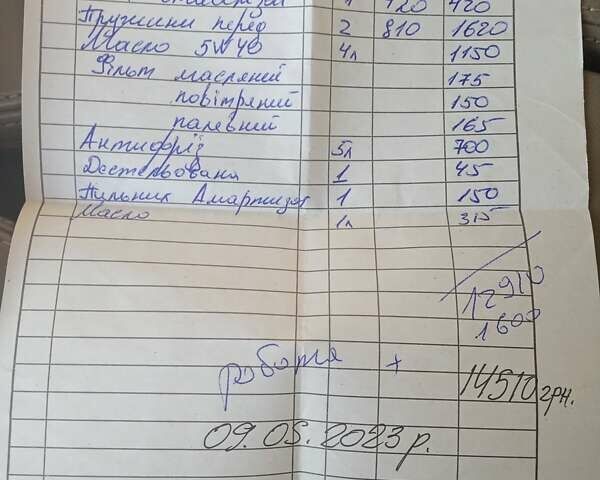 1 420 420
Пружини перед 2 810 1620
Масло 5W40 4л 1150
Фільт масляний 175
повітряний 150
палевний 165
Антифріз 5л 700
Дестельована 1 45
Пильник Амартизат 1 150
Масло 1л 315
12910
1600
робота +
14510 грн.
09.05.2023р.